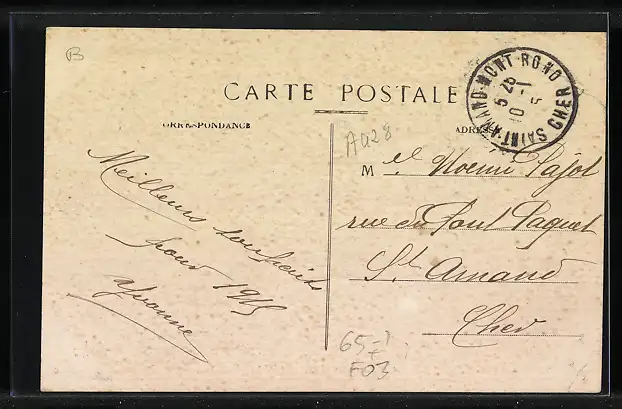 B
CARTE POSTALE
CORRESPONDANCE
ADRESSE
SAINT-AMAND-MONT-ROND CHER
5 25
10 -1
5
A428
Meilleurs souhaits
pour 1915
Yvonne
M elle Noémi Pajot
rue du Pont Paquet
St Amand
Cher
65-1
F03